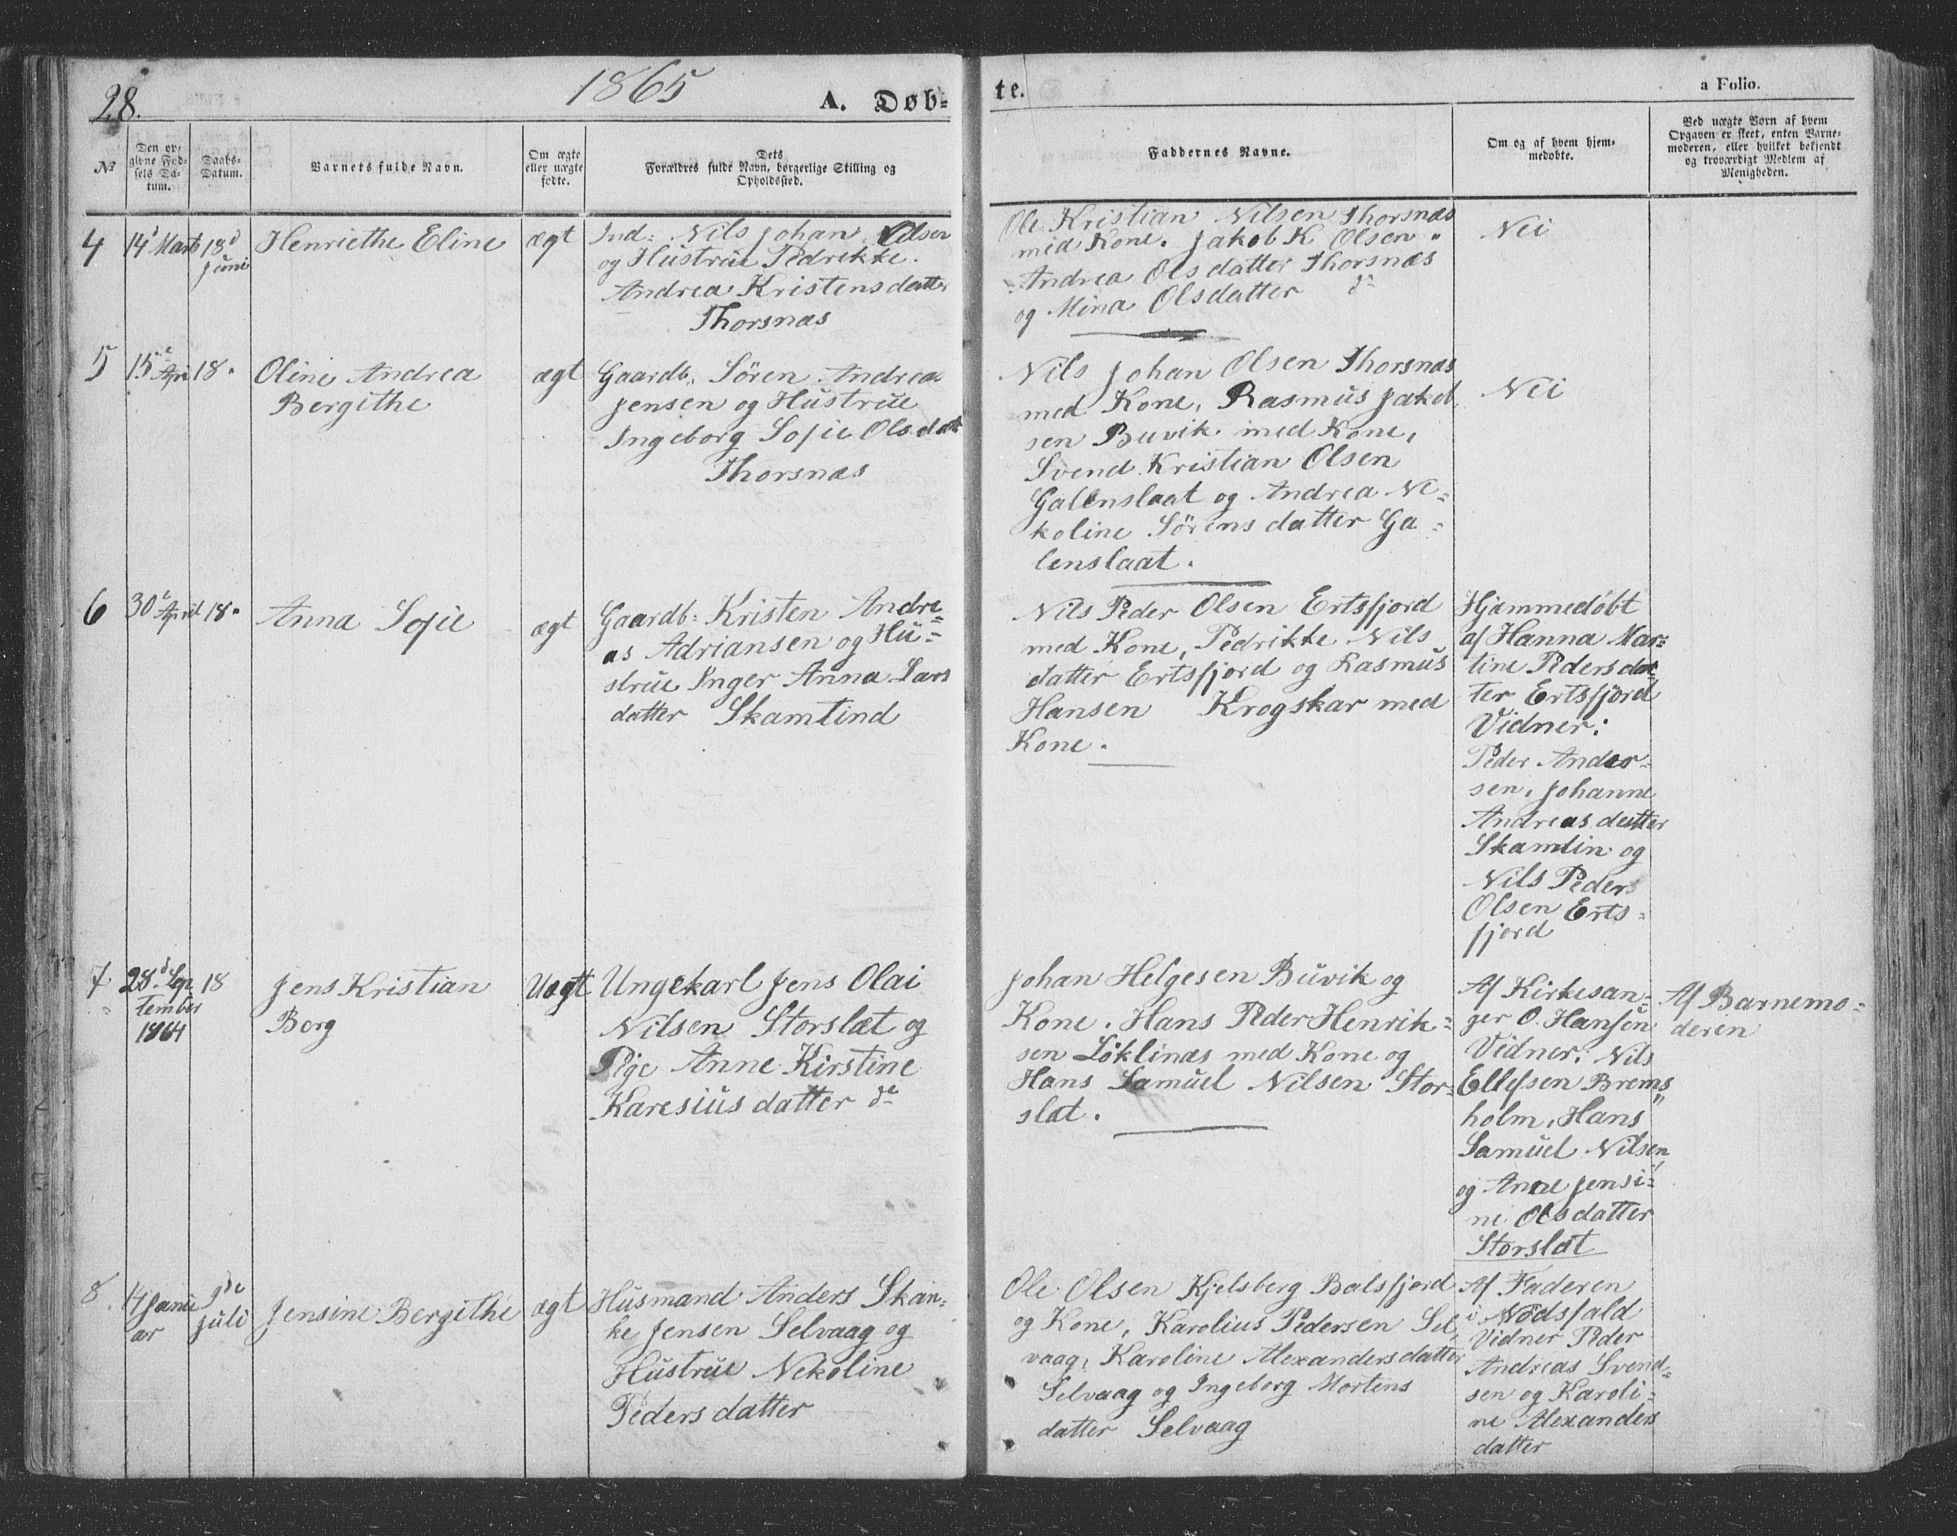 28.
1865
A. Døb-
te.
a Folio.
№
Den op-
givne Fød-
sels Da-
tum.
Daabs-
Datum.
Barnets fulde Navn.
Om ægte
eller uægte
fødte.
Dets
Forældres fulde Navn, borgerlige Stilling og
Opholdssted.
Faddernes Navne.
Om og af hvem hjem-
medøbte.
Ved uægte Børn af hvem
Opgaven er skeet, enten Barne-
moderen, eller hvilket bekjendt
og troværdigt Medlem af
Menigheden.
4
14d Marts
18d
Juni
Henriethe Eline
ægt
Ind: Nils Johan Olsen
og Hustrue Pedrikke
Andrea Kristensdatter
Thorsnæs
Ole Kristian Nilsen Thorsnæs
med Kone. Jakob K Olsen "
Andrea Olsdatter Thorsnæs
og Mina Olsdatter do
Nei
5
15de Apri
18.
Oline Andrea
Bergithe
ægt
Gaardb. Sören Andreas
Jensen og Hustrue
Ingeborg Sofie Olsdatt
Thorsnæs
Nils Johan Olsen Thorsnæs
med Kone, Rasmus Jakob
sen Buvik med Kone,
Svend Kristian Olsen
Galenslaat og Andrea Ni-
koline Sörensdatter Ga-
lenslaat.
Nei
6
30te April
18.
Anna Sofie
ægt
Gaardb: Kristen Andre=
as Adriansen og Hu=
strue Inger Anna Lars
datter Skamtind
Nils Peder Olsen Ertsfjord
med Kone, Pedrikke Nils
datter Ertsfjord og Rasmus
Hansen Krogskar med
Kone.
Hjammedøbt
af Hanna Mar=
tine Pedersdat
ter Ertsfjord
Vidner:
Peder Ander-
sen, Johanne
Andreasdatter
Skamtin og
Nils Peders
Olsen Erts-
fjord
7
28d Sep
tember
1864
18
Jens Kristian
Borg
Uægt
Ungekarl Jens Olai
Nilsen Storslæt og
Pige Anne Kirstine
Karesiusdatter do
Johan Helgesen Buvik og
Kone. Hans Peder Henrik-
sen Löklinæs med Kone og
Hans Samuel Nilsen Stor-
slæt.
Af Kirkesan-
ger O. Hansen
Vidner: Nils
Ellefsen Brems
holm, Hans
Samuel Nilsen
og Anne Jensi=
ne Olsdatter
Storslæt
Af Barnemo-
deren
8.
Janu
ar
Juli
Jensine Bergithe
ægt
Husmand Anders Skan-
ke Jensen Selvaag og
Hustrue Nekoline
Pedersdatter
Ole Olsen Kjelsberg Balsfjord
og Kone, Karolius Pedersen Sel
vaag, Karoline Alexandersdatter
Selvaag og Ingeborg Mortens
datter Selvaag
Af Faderen
i Nødsfald
Vidner Peder
Andreas Svend-
sen og Karoli-
ne Alexanders
datter